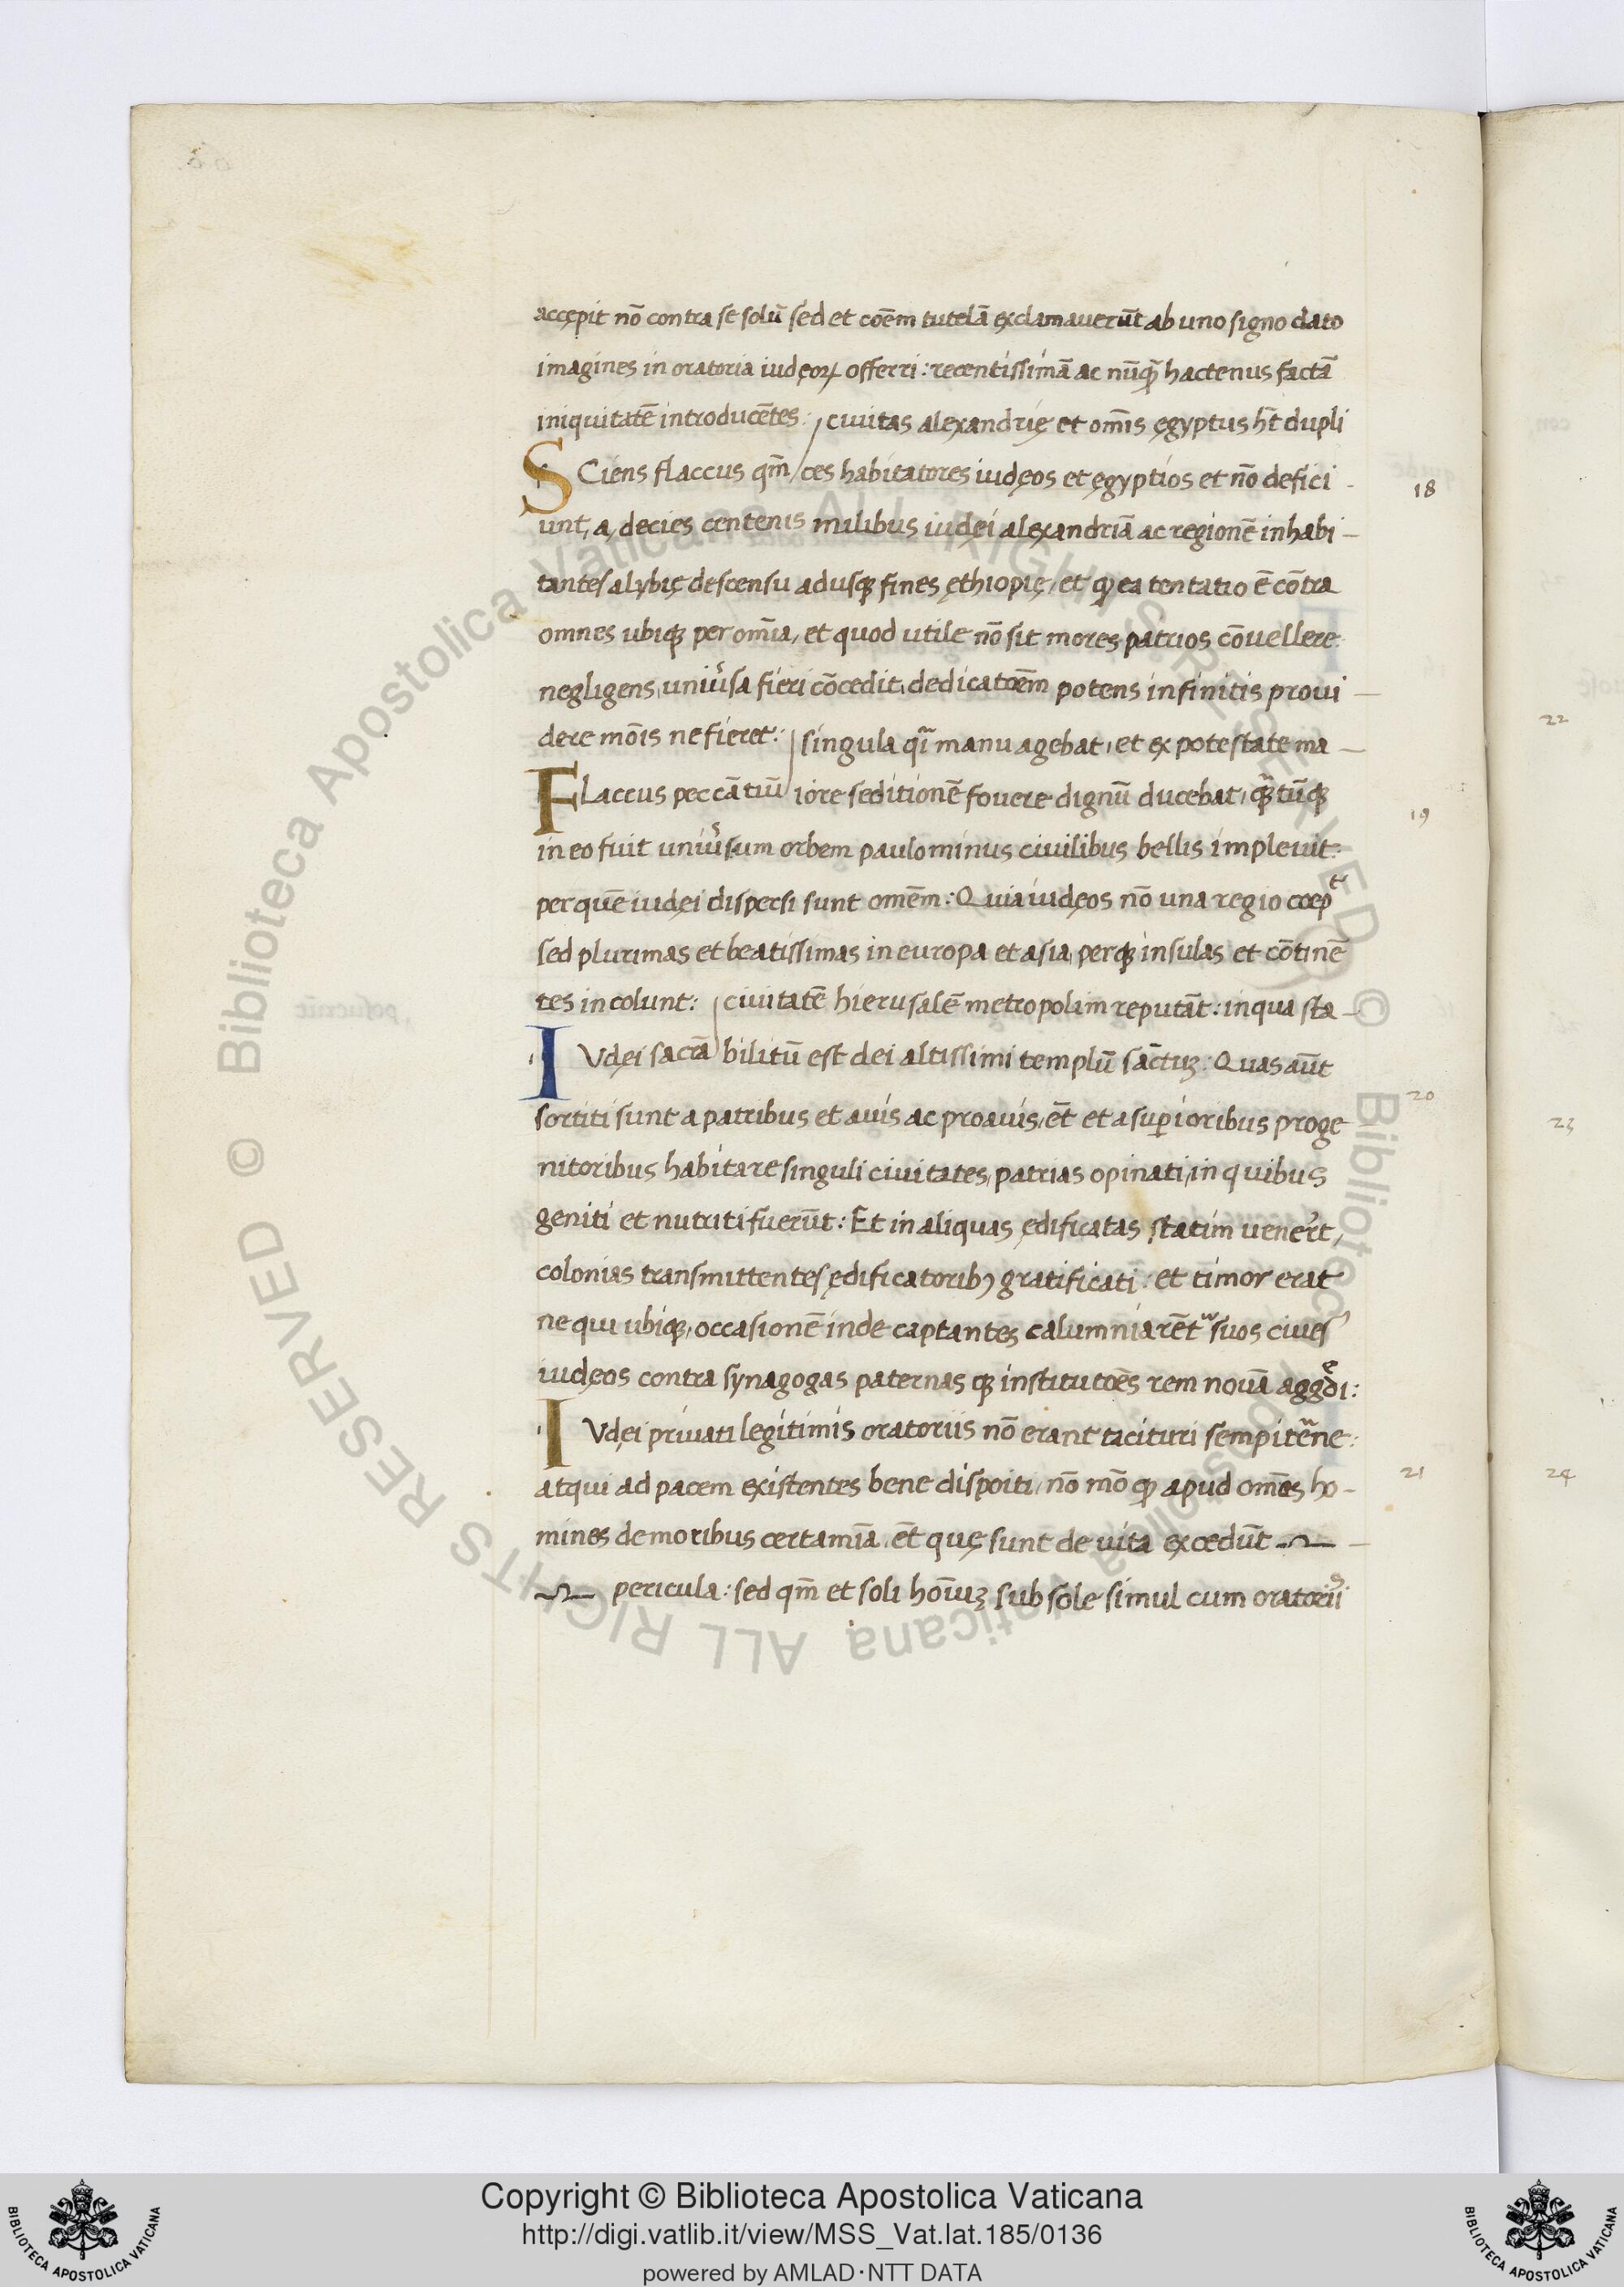 accępit nō contra se solū sed et cōem tutelā exclamauerūt ab uno signo dato
imagines in oratoria iudęoꝝ offerri: recentissimā ac nūqꝫ hactenus factā
iniquitatē introducētes: ciuitas alexandrię et om̄is ęgyptus hn̄t dupli
SCiens flaccus qm̄ ces habitatores iudęos et ęgyptios et nō defici
unt, a, decies centenis milibus iudęi alexandriā ac regionē inhabi-
tantes a lybię descensu adusqꝫ fines ęthiopię, et qꝫ ea tentatio ē cōtra
omnes ubiqꝫ per om̄ia, et quod utile nō sit mores patrios cōuellere:
negligens, uniūsa fieri cōcedit, dedicatōem potens infinitis proui-
dere mōis ne fieret: singula qī manu agebat, et ex potestate ma-
FLaccus peccātiū iore seditionē fouere dignū ducebat, qꝫtūqꝫ
in eo fuit uniūsum orbem paulominus ciuilibus bellis impleuit:
per quē iudęi dispersi sunt omēm: Quia iudęos nō una regio coepᵗ
sed plurimas et beatissimas in europa et asia, perqꝫ insulas et cōtinē
tes incolunt: ciuitatē hierusalē metropolim reputāt: in qua sta-
IVdęi sacrā bilitū est dei altissimi templū sāctuꝫ: Quas aūt
sortiti sunt a patribus et auis ac proauis, ēt et a suꝑioribus proge
nitoribus habitare singuli ciuitates, patrias opinati, in quibus
geniti et nutriti fuerūt: Et in aliquas ędificatas statim venert̄,
colonias transmittentes ędificatorib⁊ gratificati: et timor erat
ne qui ubiqꝫ, occasionē inde captantes calumniarēt suos ciues
iudęos contra synagogas paternas qꝫ institutōes rem nouā aggᵉdi:
IVdęi priuati legitimis oratoriis nō erant tacituri sempitēne:
atqui ad pacem existentes bene dispoiti, nō mō qꝫ apud om̄es ho-
mines de moribus certamīa, ēt quę sunt de uita excedūt
pericula: sed qm̄ et soli hoīuꝫ sub sole simul cum oratoriis
18
19
20
21
22
23
24
Copyright © Biblioteca Apostolica Vaticana
http://digi.vatlib.it/view/MSS_Vat.lat.185/0136
powered by AMLAD·NTT DATA
BIBLIOTECA APOSTOLICA VATICANA
BIBLIOTECA APOSTOLICA VATICANA
© Biblioteca Apostolica Vaticana ALL RIGHTS RESERVED
© Biblioteca Apostolica Vaticana ALL RIGHTS RESERVED